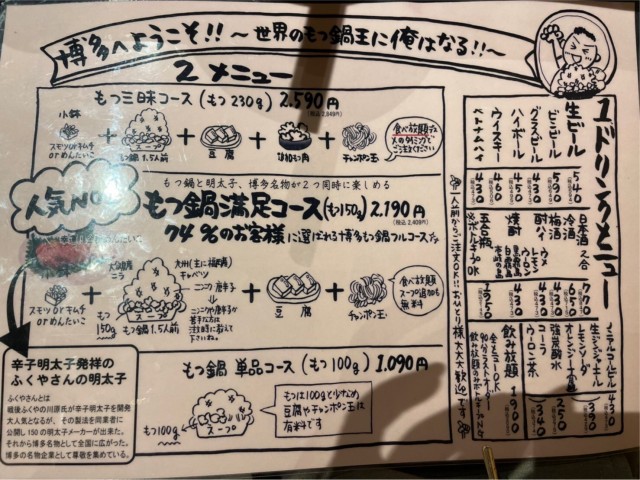 博多へようこそ!!〜世界のもつ鍋王に俺はなる!!〜
2メニュー
もつ三昧コース(もつ230g) 2,590円
(税込2,849円)
小鉢
スモツorキムチ
orめんたいこ
もつ鍋1.5人前
豆腐
チャンポン玉
食べ放題
〆のタイミングで
ご注文ください
もつ鍋と明太子、博多名物が2つ同時に楽しめる
人気NO1
もつ鍋満足コース(もつ150g) 2,190円
(税込 2,409円)
74%のお客様に選ばれる博多もつ鍋フルコース
スモツorキムチ
orめんたいこ
ニラ
キャベツ
もつ
150g
スープ
もつ鍋1人前
豆腐
チャンポン玉
食べ放題
スープ追加も
無料
辛子明太子発祥の
ふくやさんの明太子
ふくやさんとは
戦後ふくやの川原氏が辛子明太子を開発
大人気となるが、その製法を同業者に
公開し150の明太子メーカーが出来た。
それから博多名物として全国に広がった。
博多の名物企業として尊敬を集めている。
もつ鍋 単品コース(もつ100g) 1,090円
もつ100g
スープ
もつは100gと少なめ
豆腐やチャンポン玉は
有料です
一人前からご注文OK!!おひとり様大大大歓迎です
ドリンクメニュー
生ビール 540
ビンビール 590
グラスビール 430
ハイボール 450
ウイスキー 460
ベトナムハイ 430
日本酒2合 770
冷酒 650
梅酒 430
酎ハイ
レモン
ウーロン
焼酎
五合瓶
※ボトルキープOK
ノンアルコールビール 430
生ジンジャーエール
レモンソーダ
オレンジジュース
390
強炭酸水 250
コーラ
ウーロン茶
340
飲み放題 1,990
全メニューOK
90分ラストオーダー